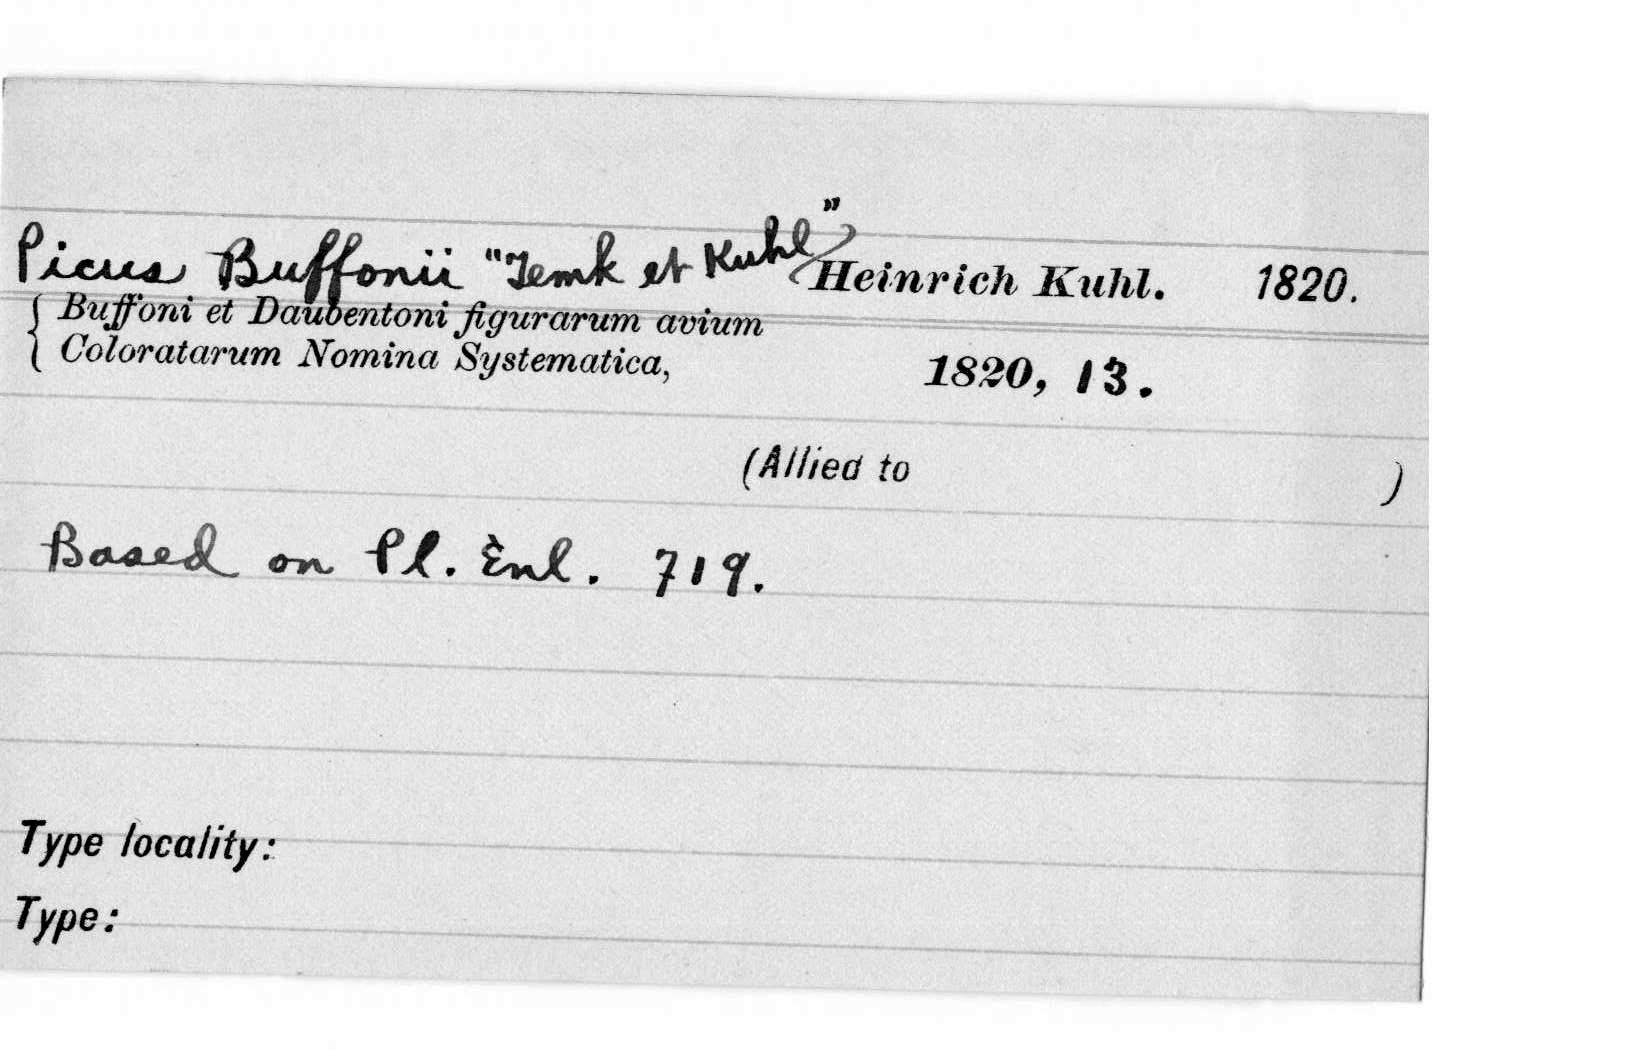 Picus Buffonii "Temk et Kuhl" Heinrich Kuhl. 1820.
Buffoni et Daubentoni figurarum avium
Coloratarum Nomina Systematica, 1820, 13.
(Allied to )
Based on Pl. Enl. 719.
Type locality:
Type: